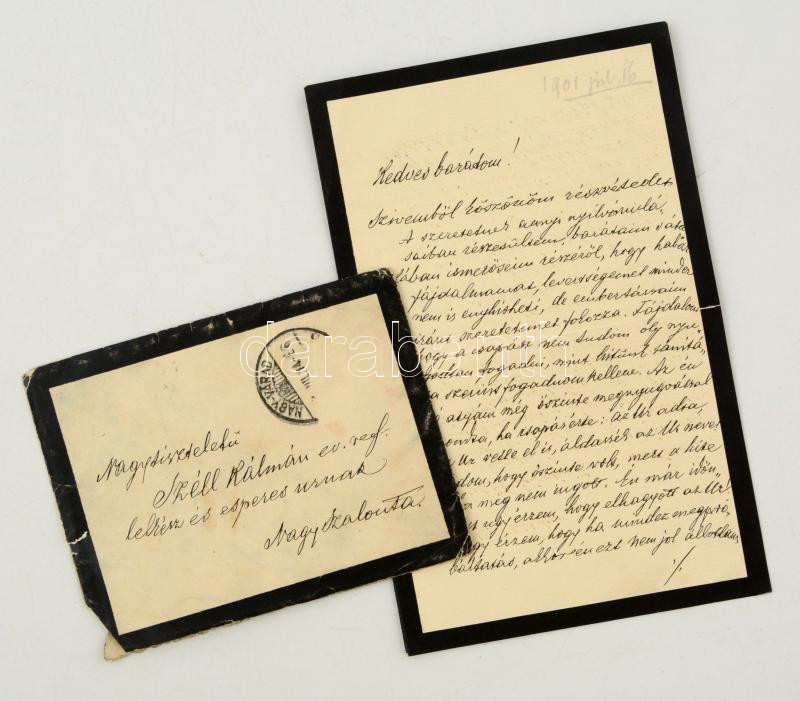 1901 júl. 16
Kedves barátom!
Szivemből köszönöm részvétedet
A szeretetnek annyi nyilvánulá-
saiban részesültem, barátaim s ál
lában ismerőseim részéről, hogy habár
fájdalmamat, leverségemet mindez
nem is enyhitheti, de embertársaim
iránti szeretetemet fokozza. Fájdalom
hogy a csapást nem tudom oly nyu-
godtan fogadni, mint hitünk tanitá-
sa szerint fogadnom kellene. Az én
atyám még őszinte megnyugvással
mondta, ha csapás érte: az Úr adta,
Úr vette el is, áldassék az Úr neve!
tudom, hogy őszinte volt, mert a hite
még nem ingott. Én már
úgy érzem, hogy elhagyott az Úr!
úgy érzem, hogy ha mindez
, akkor én ezt nem jól
./.
NAGY-VÁRAD
Nagytiszteletű
Széll Kálmán ev. ref.
lelkész és esperes urnak
Nagy Szalonta
darabanth